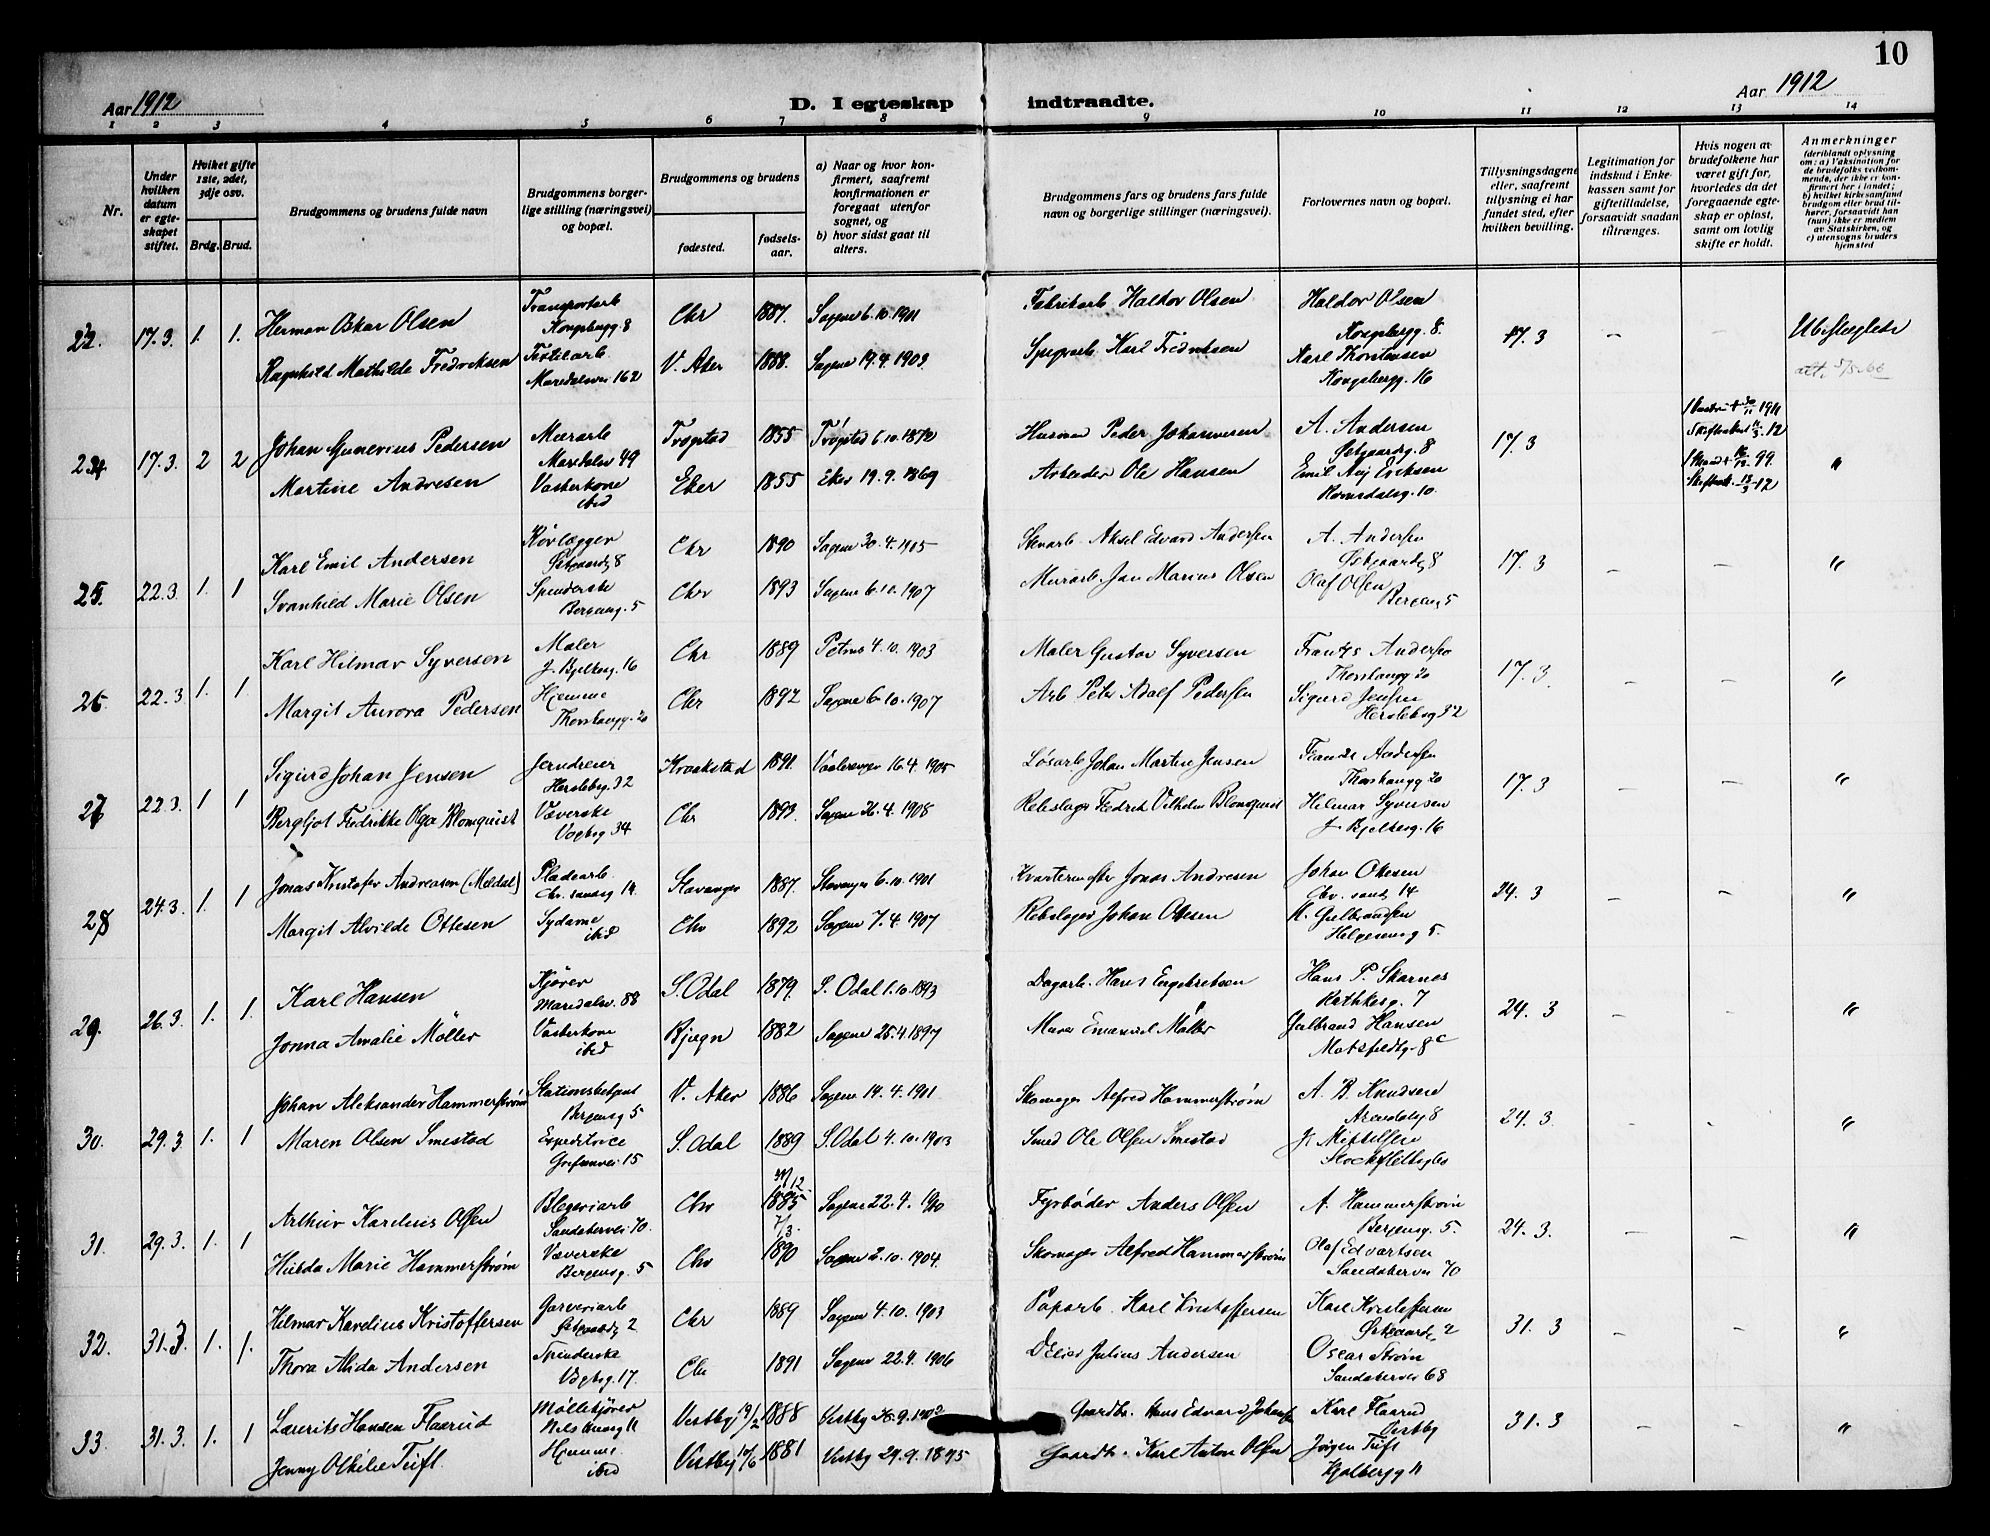 10
Aar 1912
D. I egteskap indtraadte.
Aar 1912
1 2 3 4 5 6 7 8 9 10 11 12 13 14
Nr.
Under hvilken datum er egteskapet stiftet.
Hvilket gifte 1ste, 2det, 3dje osv.
Brdg. Brud.
Brudgommens og brudens fulde navn
Brudgommens borgerlige stilling (næringsvei) og bopæl.
Brudgommens og brudens
fødested.
fødselsaar.
a) Naar og hvor konfirmert, saafremt konfirmationen er foregaat utenfor sognet, og
b) hvor sidst gaat til alters.
Brudgommens fars og brudens fars fulde navn og borgerlige stillinger (næringsvei).
Forlovernes navn og bopæl.
Tillysningsdagene eller, saafremt tillysning ei har fundet sted, efter hvilken bevilling.
Legitimation for indskud i Enkekassen samt for giftetilladelse, forsaavidt saadan tiltrænges.
Hvis nogen av brudefolkene har været gift for, hvorledes da det foregaaende egteskap er opløst, samt om lovlig skifte er holdt.
Anmerkninger
(deriblandt oplysning om: a) Vaksination for de brudefolks vedkommende, der ikke er konfirmert her i landet; b) hvilket kirkesamfund brudgom eller brud tilhører, forsaavidt han (hun) ikke er medlem av Statskirken, og c) utensogns bruders hjemsted
17.3. 1. 1. Herman Oskar Olsen Transportarb Kongsbergg. 8 Chr 1887. Sagene 6.10.1901 Fabrikarb Haldor Olsen Haldor Olsen Kongsbergg. 8. 17.3 – – Ubeslegtede
Ragnhild Mathilde Fredriksen Textilarb Maridalsvei 162 V. Aker 1888. Sagene 19.4.1903. Karl Fredriksen Karl Thorstensen Kongsbergg. 16
17.3. 2 2 Johan Gunerius Pedersen Murarb Maridalsv 49 Trøgstad 1855 Trøgstad 6.10.1872 Husmand Peder Johannesen A. Andersen Østgaardsg. 8 17.3 "
Martine Andresen Vaskerkone ibid Eker 1855 Eker 19.9.1869 Arbeider Ole Hansen Emil Aug Eriksen Romsdalsg. 10.
25. 22.3. 1. 1 Karl Emil Andersen Rørlægger Østgaardsg 8 Chr 1890 Sagene 30.4.1905 Stenarb. Aksel Edvard Andersen A. Andersen Østgaardsg 8 17.3 – – "
Svanhild Marie Olsen Spinderske Bergensg. 5 Chr 1893 Sagene 6.10.1907 Murarb Jan Marius Olsen Olaf Olsen Bergensg 5
26. 22.3 1. 1 Karl Hilmar Syversen Maler J. Bjelkesg. 16 Chr 1889 Petrus 4.10.1903 Maler Gustav Syversen Frantz Andersen Thorshaugg 20 17.3. – – "
Margit Aurora Pedersen Hjemme Thorshaugg. 20 Chr 1892 Sagene 6.10.1907 Arb Peter Adolf Pedersen Sigurd Jensen Herslebsg 32
27 22.3. 1 1 Sigurd Johan Jensen Jerndreier Herslebsg. 32 Kraakstad 1891. Vaalerengen 16.4.1905 Løsarb Johan Martin Jensen Andersen Thorshaugg 20 17.3 – – "
Bergljot Fredrikke Olga Blomquist Væverske Vogtsg 34 Chr 1893. Sagene 26.4.1908 Rebslager Fredrik Vilhelm Blomquist Hilmar Syversen J. Bjelkesg. 16
28 24.3. 1. 1 Jonas Kristofer Andreasen (Meldal) Pladearb. 14. Stavanger 1887. Stavanger 6.10.1901 Kvartermester Jonas Andresen Johan Ottesen 14 24.3 – "
Margit Alvilde Ottesen Sydame ibid Chr 1892 Sagene 7.4.1907 Rebslager Johan Ottesen Helgesensg 5.
29. 26.3. 1. 1. Karl Hansen Kjører Maridalsv. 88 S. Odal 1879. S. Odal 1.10.1893 Dagarb. Hans Engebretsen Hans P. Skarnes Rathkesg. 7 24.3 – – "
Jonna Amalie Möller Vaskerkone ibid 1882 Sagene 25.4.1897 Murer Emanuel Möller Gulbrand Hansen 8c
30. 29.3 1. 1 Johan Aleksander Hammerstrøm Stationsbetjent Bergensg 5 V. Aker 1886 Sagene 14.4.1901 Skomager Alfred Hammerstrøm A. B. Knudsen Arendalsg 8 24.3. – "
Maren Olsen Smestad Expeditrice Grefsenvei 15 S. Odal 1889 S. Odal 4.10.1903 Smed Ole Olsen Smestad J. Mikkelsen
31. 29.3. 1. 1 Arthur Karelius Olsen Blegeriarb Sandakervei 70. Chr 1885 Sagene 22.4. Fyrbøder Anders Olsen A. Hammerstrøm Bergensg. 5. 24.3. – – "
Hulda Marie Hammerstrøm Væverske Bergensg. 5 Chr 7/3. 1890 Sagene 2.10.1904. Skomager Alfred Hammerstrøm Olaf Edvartsen Sandakervei 70
32. 31.3 1. 1. Hilmar Karelius Kristoffersen Garveriarb Østgaardsg 2 Chr 1889 Sagene 4.10.1903 Paparb. Karl Kristoffersen Karl Kristoffersen Østgaardsg 2 31.3 – – "
Thora Alida Andersen Spinderske Vogtsg. 17. Chr 1891 Sagene 22.4.1906 Julius Andersen Oscar Strøm Sandakervei 68
33. 31.3. 1. 1 Laurits Hansen Flaarud Møllekjører Vestby 19/2 1888 Vestby 1902 Gaardbr. Hans Edvard Johansen Karl Flaarud Vestby 31.3 – – "
Jenny Othilie Tuft Hjemme ibid Vestby 10/6 1881 Vestby 29.9.1895 Gaardbr. Karl Anton Olsen Jørgen Tuft